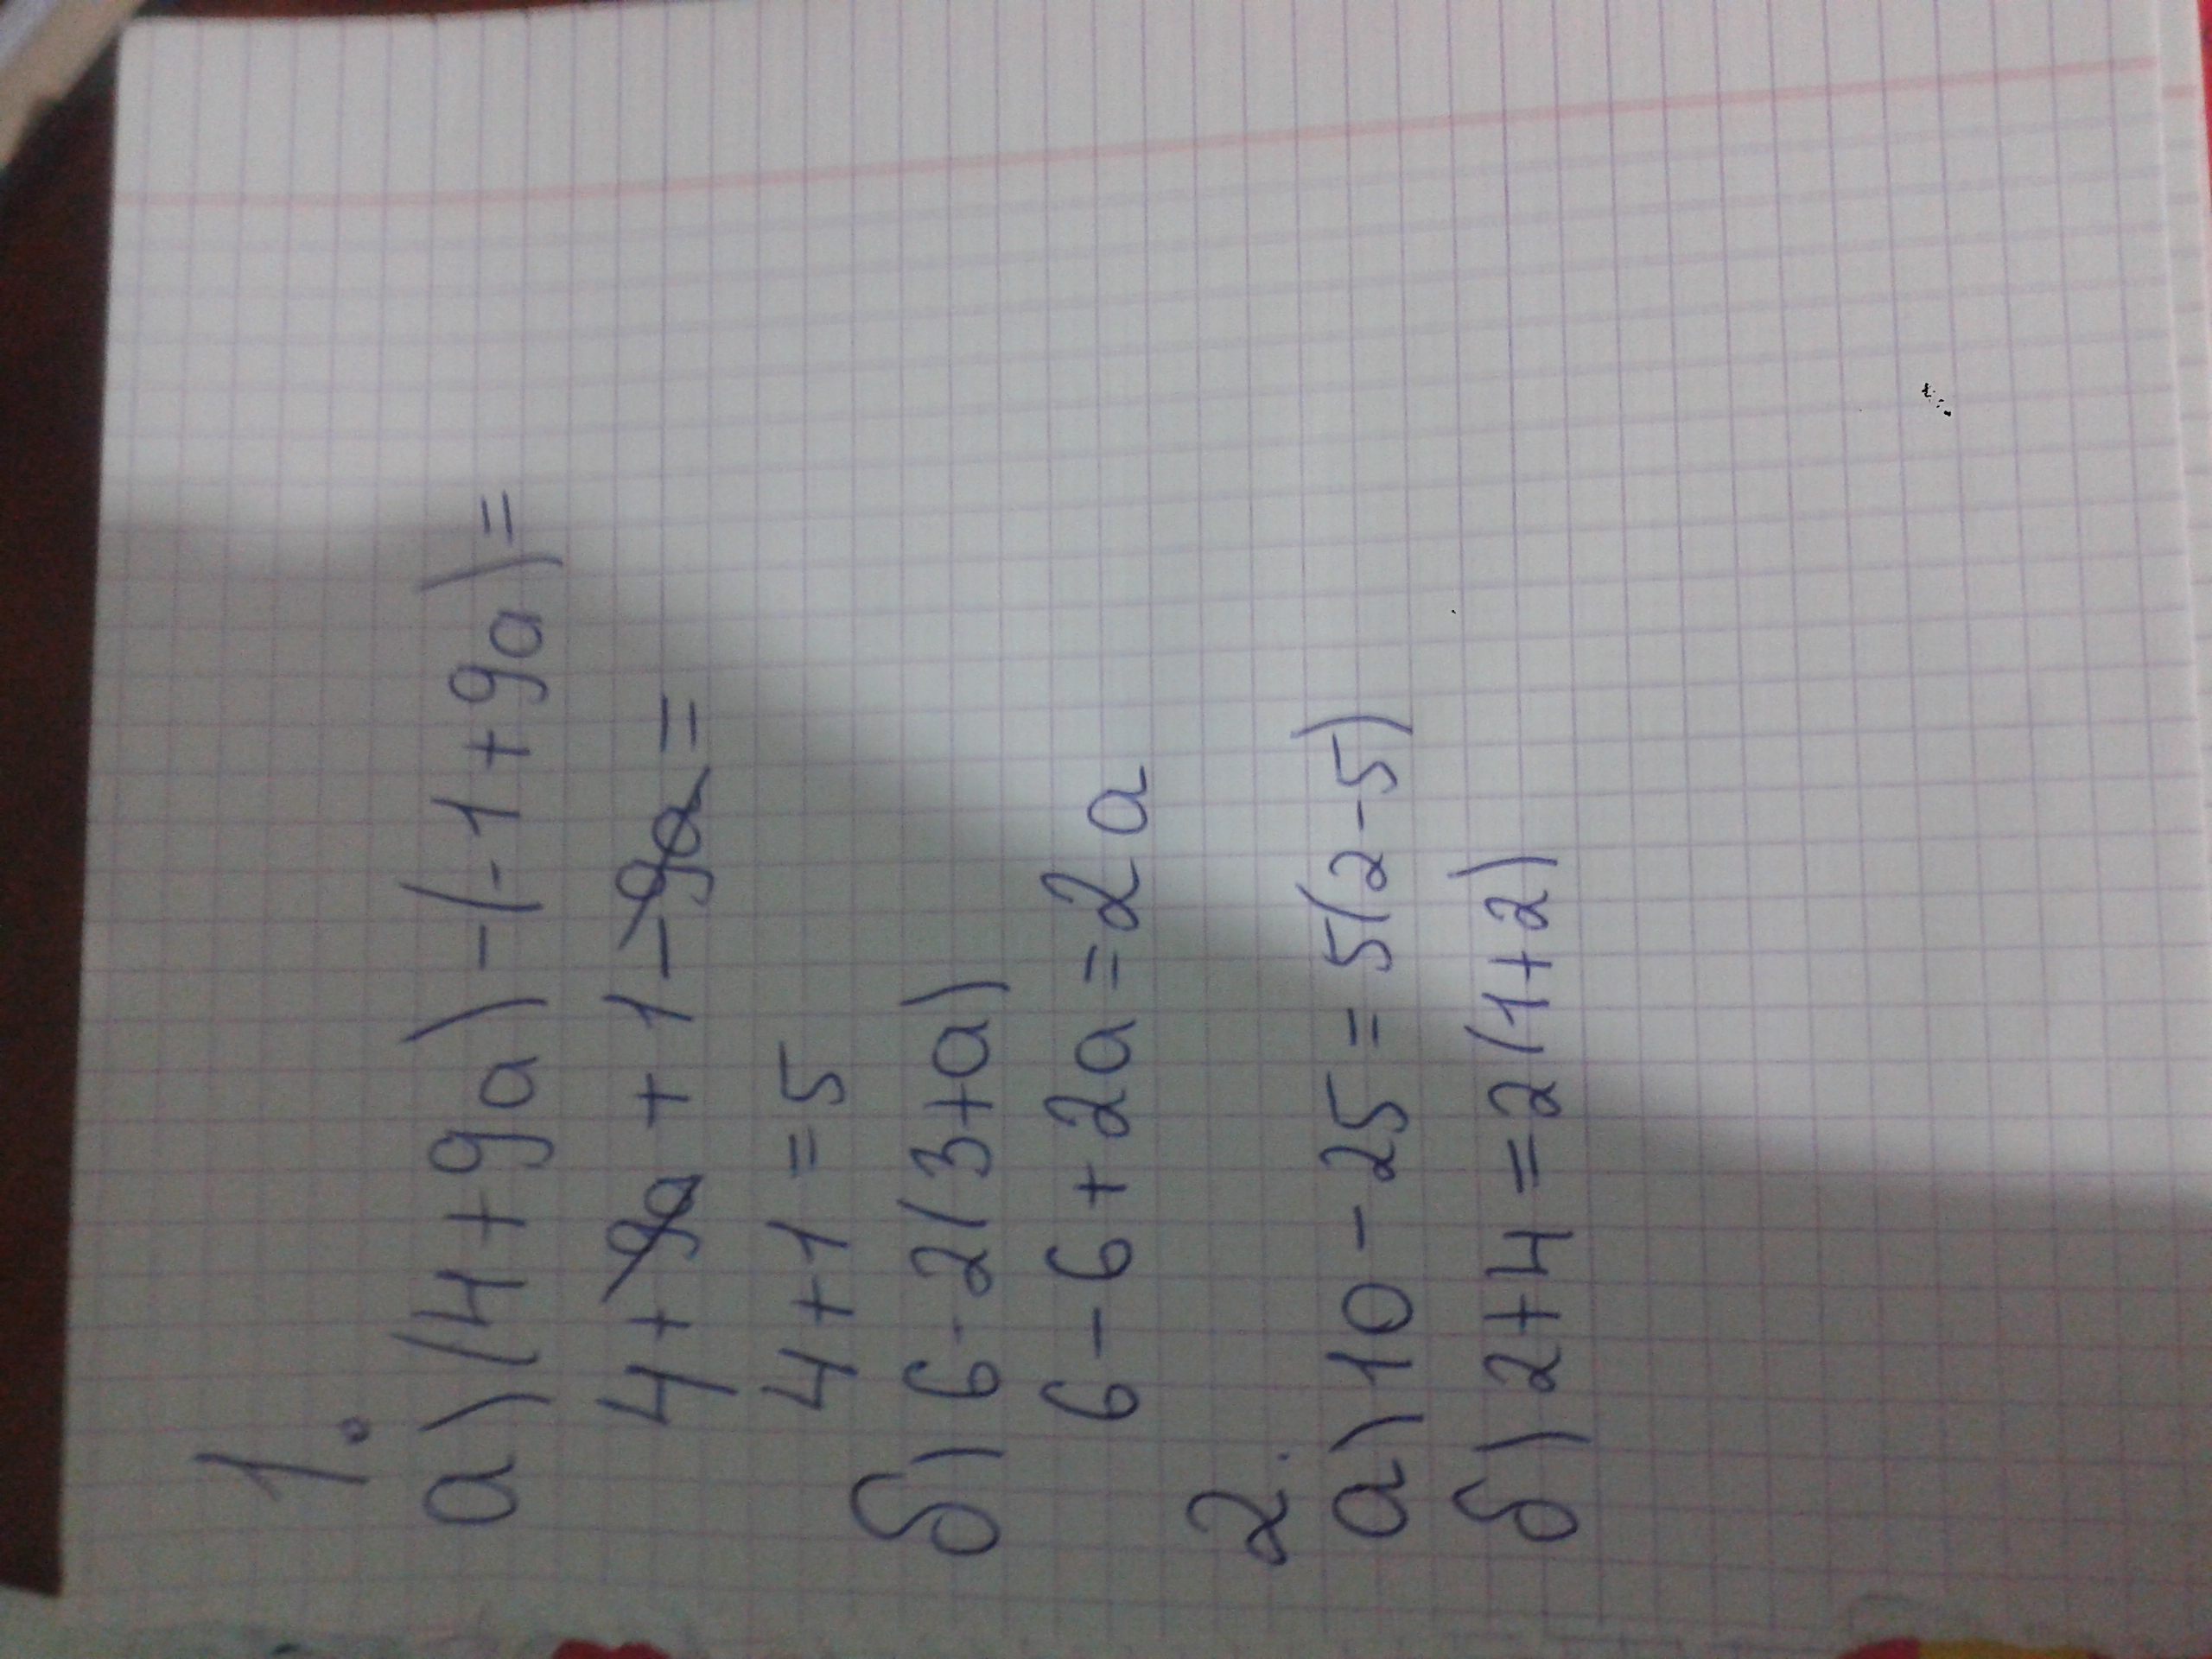 1.
а) (4+9а) -(-1+9а)=
4+9а+1-9а=
4+1=5
б) 6-2(3+а)
6-6+2а=2а
2.
а) 10-25=5(2-5)
б) 2+4=2(1+2)